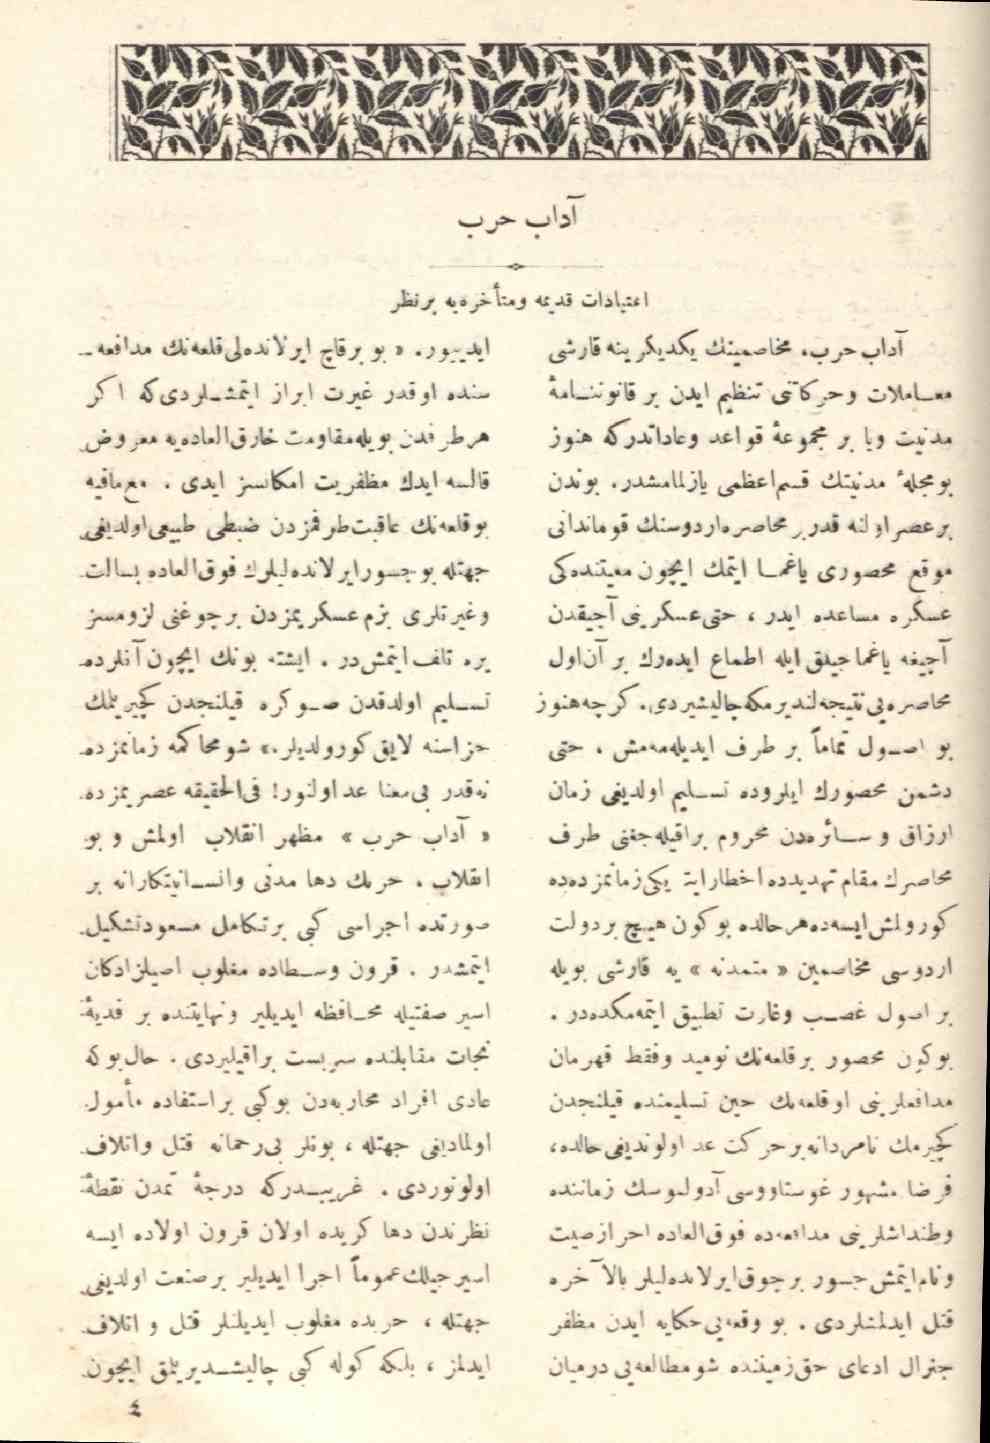 آداب حرب
اعتیادات قدیمه ومتأخره‌یه برنظر
آداب حرب، مخاصمینك یكدیكرینه قارشی
معاملات وحركاتنی تنظیم ایدن بر قانوننامهٔ
مدنیت ویا بر مجموعهٔ قواعد وعاداتدركه هنوز
بو مجلهٔ مدنیتك قسم اعظمی یازلمامشدر. بوندن
برعصر اولنه قدر بر محاصره اردوسنك قوماندانی
موقع محصوری یاغما ایتمك ایچون معیتنده‌كی
عسكره مساعده ایدر ، حتی عسكرینی آجیقدن
آجیغه یاغماجیلق ایله اطماع ایده‌رك بر آن اول
محاصره‌یی نتیجه‌لندیرمكه چالیشیردی. كرچه هنوز
بو اصول تماماً بر طرف ایدیله‌مه‌مش ، حتی
دشمن محصورك ایلروده تسلیم اولدیغی زمان
ارزاق و سائره‌دن محروم براقیله‌جغنی طرف
محاصرك مقام تهدیدده اخطار ایتدیكی زمانمزده‌ده
كورولمش ایسه‌ده هر حالده بو كون هیچ بر دولت
اردوسی مخاصمین « متمدنه » یه قارشی بویله
بر اصول غصب وغارت تطبیق ایتمه‌مكده‌در .
بوكون محصور بر قلعه‌نك نومید وفقط قهرمان
مدافعلرینی او قلعه‌نك حین تسلیمنده قیلنجدن
كچیرمك نامردانه بر حركت عد اولوندیغی حالده،
فرضا مشهور غوستاووسی آدولفوسك زماننده
وطنداشلرینی مدافعه‌ده فوق‌العاده احراز صیت
ونام ایتمش جسور بر چوق ایرلانده‌لیلر بالآخره
قتل ایدلمشلردی . بو وقعه‌یی حكایه ایدن مظفر
جنرال ادعای حق زمیننده شو مطالعه‌یی درمیان
ایدییور. « بو بر قاچ ایرلانده‌لی قلعه‌نك مدافعه ـ
سنده او قدر غیرت ابراز ایتمشلردی‌كه اكر
هر طرفدن بویله مقاومت خارق‌العاده‌یه معروض
قالسه ایدك مظفریت امكانسز ایدی . مع‌مافیه
بو قلعه‌نك عاقبت طرفمزدن ضبطی طبیعی اولدیغی
جهتله بو جسور ایرلانده‌لیلرك فوق‌العاده بسالت
وغیرتلری بزم عسكریمزدن بر چوغنی لزومسز
یره تلف ایتمش‌در . ایشته بونك ایچون آنلرده
تسلیم اولدقدن صوكره قیلنجدن كچیریلمك
جزاسنه لایق كورولدیلر.» شو محاكمه زمانمزده
نه‌قدر بی‌معنا عد اولنور! فی‌الحقیقه عصریمزده
« آداب حرب » مظهر انقلاب اولمش و بو
انقلاب ، حربك دها مدنی وانسانیتكارانه بر
صورتده اجراسی كبی بر تكامل مسعود تشكیل
ایتمشدر . قرون وسطاده مغلوب اصیلزادكان
اسیر صفتیله محافظه ایدیلیر ونهایتنده بر فدیهٔ
نجات مقابلنده سربست براقیلیردی . حال بو كه
عادی افراد محاربه‌دن بو كبی بر استفاده مأمول
اولمادیغی جهتله ، بونلر بی‌رحمانه قتل واتلاف
اولونوردی . غریبدركه درجهٔ تمدن نقطهٔ
نظرندن دها كریده اولان قرون اولاده ایسه
اسیرجیلك عموماً اجرا ایدیلیر بر صنعت اولدیغی
جهتله ، حربده مغلوب ایدیلنلر قتل و اتلاف
ایدلمز ، بلكه كوله كبی چالیشدیریلمق ایچون
٤